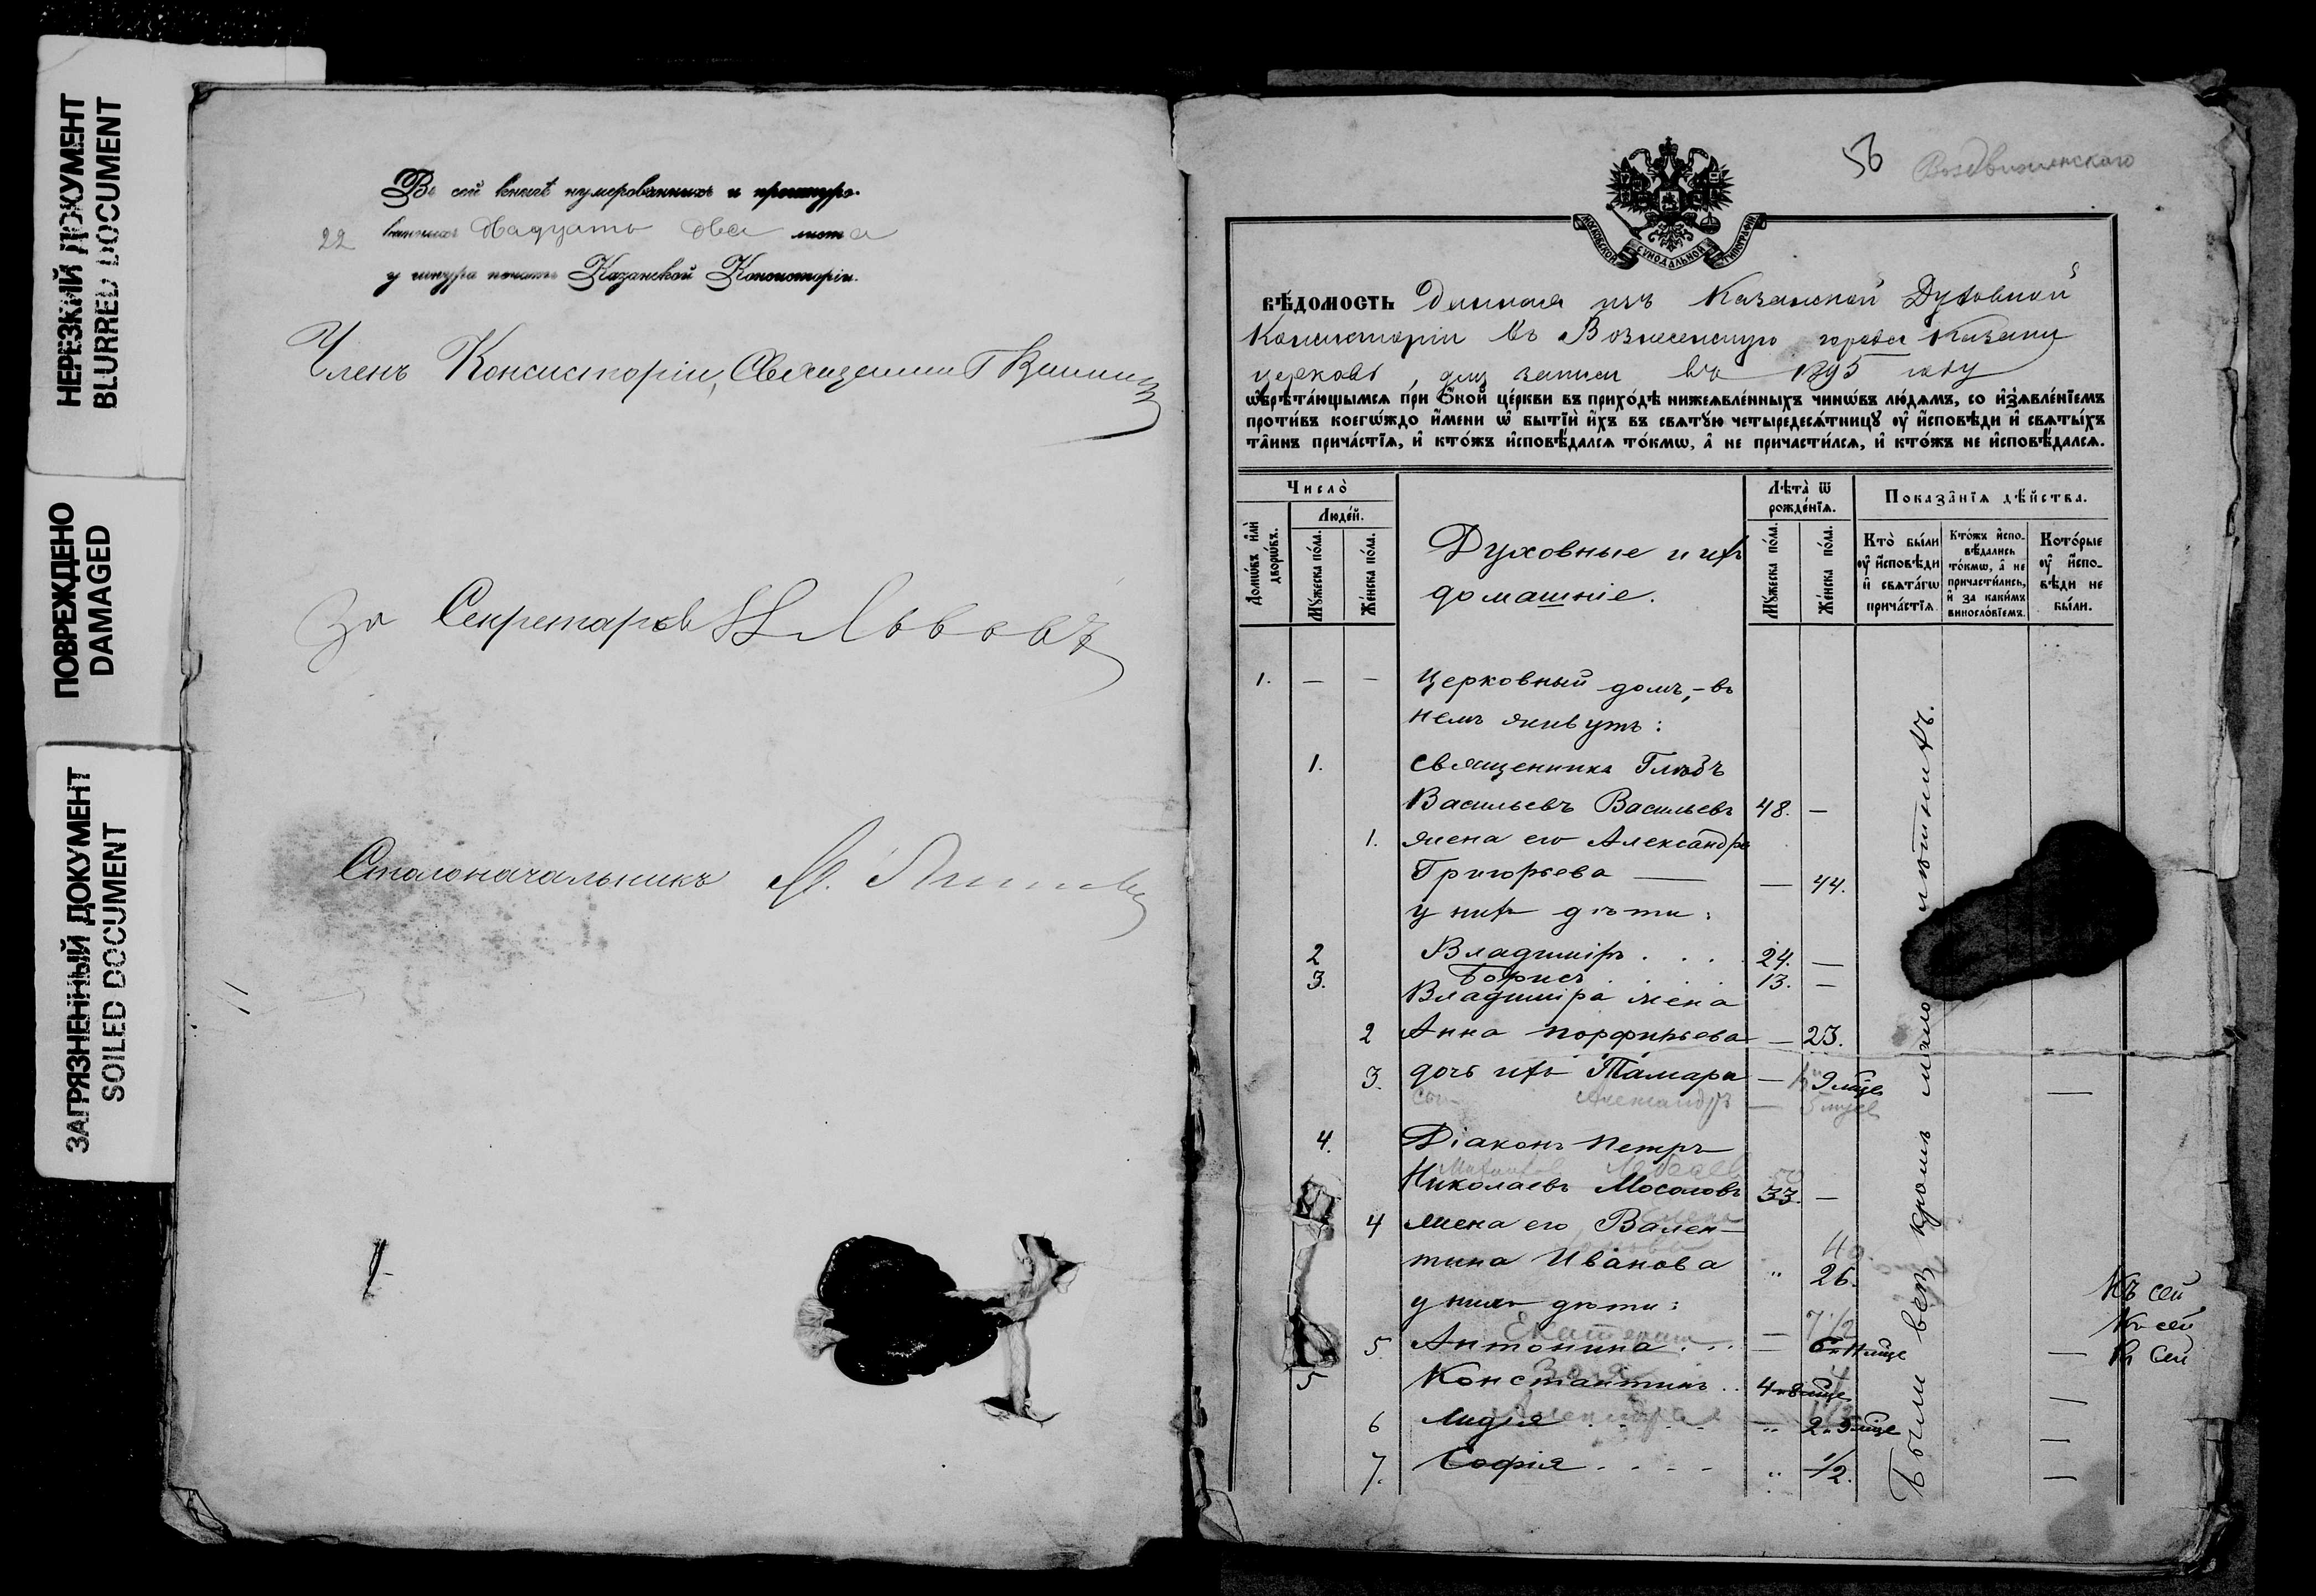 НЕРЕЗКИЙ ДОКУМЕНТ
BLURRED DOCUMENT
ПОВРЕЖДЕНО
DAMAGED
ЗАГРЯЗНЕННЫЙ ДОКУМЕНТ
SOILED DOCUMENT
Въ сей книгѣ нумерованныхъ и прошнуро-
22 ванныхъ двадцать два листа
у шнура печать Казанской Консисторіи.
Членъ Консисторіи, Священникъ
За Секретаря Н Львовъ
Столоначальникъ М.
56 Воздвиженскаго
МОСКОВСКОЙ СѴНОДАЛЬНОЙ ТИПОГРАФІИ
ВѢДОМОСТЬ Данная изъ Казанской Духовной
Консисторіи въ Вознесенскую города Казани
церковь, для записи въ 1895 году
ѡ҆брѣта́ющымсѧ при́ ѻ҆́ной це́ркви въ прихо́дѣ нижеѧвле́нныхъ чинѡ́въ лю́дѧмъ, со и҆з̾ѧвле́нїемъ
про́тивъ коегѡ́ждо и҆́мени ѡ҆ бытїѝ и҆́хъ въ свѧту́ю четыредесѧ́тницꙋ ᲂу҆ и҆́сповѣди и҆ свѧты́хъ
та̑инъ прича́стїѧ, и҆ кто́жъ и҆сповѣ́далсѧ то́кмѡ, а҆ не причасти́лсѧ, и҆ кто́жъ не и҆сповѣ́далсѧ.
Число̀
Домѡ́въ и҆лѝ дворѡ́въ.
Люде́й.
Мꙋ́жеска по́ла.
Же́нска по́ла.
Духовные и ихъ
домашніе.
Лѣта̀ ѿ рожде́нїѧ.
Мꙋ́жеска по́ла.
Же́нска по́ла.
Показа̑нїѧ дѣ́йства.
Кто̀ бы́ли ᲂу҆ и҆́сповѣди и҆ свѧта́гѡ прича́стїѧ
Кто́жъ и҆спо-вѣ́дались то́кмѡ, а҆ не причасти́лись, и҆ за каки́мъ винослѡ́вїемъ.
Кото́рые ᲂу҆ и҆́спо-вѣди не бы́ли.
1. — — Церковный домъ, – въ
немъ живутъ:
1. Священникъ Глѣбъ
Васильевъ Васильевъ 48. —
1. жена его Александра
Григорьева — — 44.
у нихъ дѣти:
2 Владиміръ . . . 24. —
3. Борисъ . . . 13. —
Владиміра жена
2 Анна Порфирьева — 23.
3. дочь ихъ Тамара — 9 мѣце —
сын Александръ — 5 мѣсе
4. Діаконъ Петръ
Николаевъ Мосоловъ 33. —
4 жена его Вален-
тина Иванова „ 26.
40
у нихъ дѣти:
Екатерина 7 1/2
5. Антонина . . . — 6 и 11 мѣце —
5 Константинъ . . 4 и 8 мѣце —
Александра
6 Лидія . . . „ 2 и 5 мѣце —
7. Софія . . . . „ 1/2. —
Были всѣ кромѣ малолѣтнихъ.
Къ сей
Къ сей
Къ сей